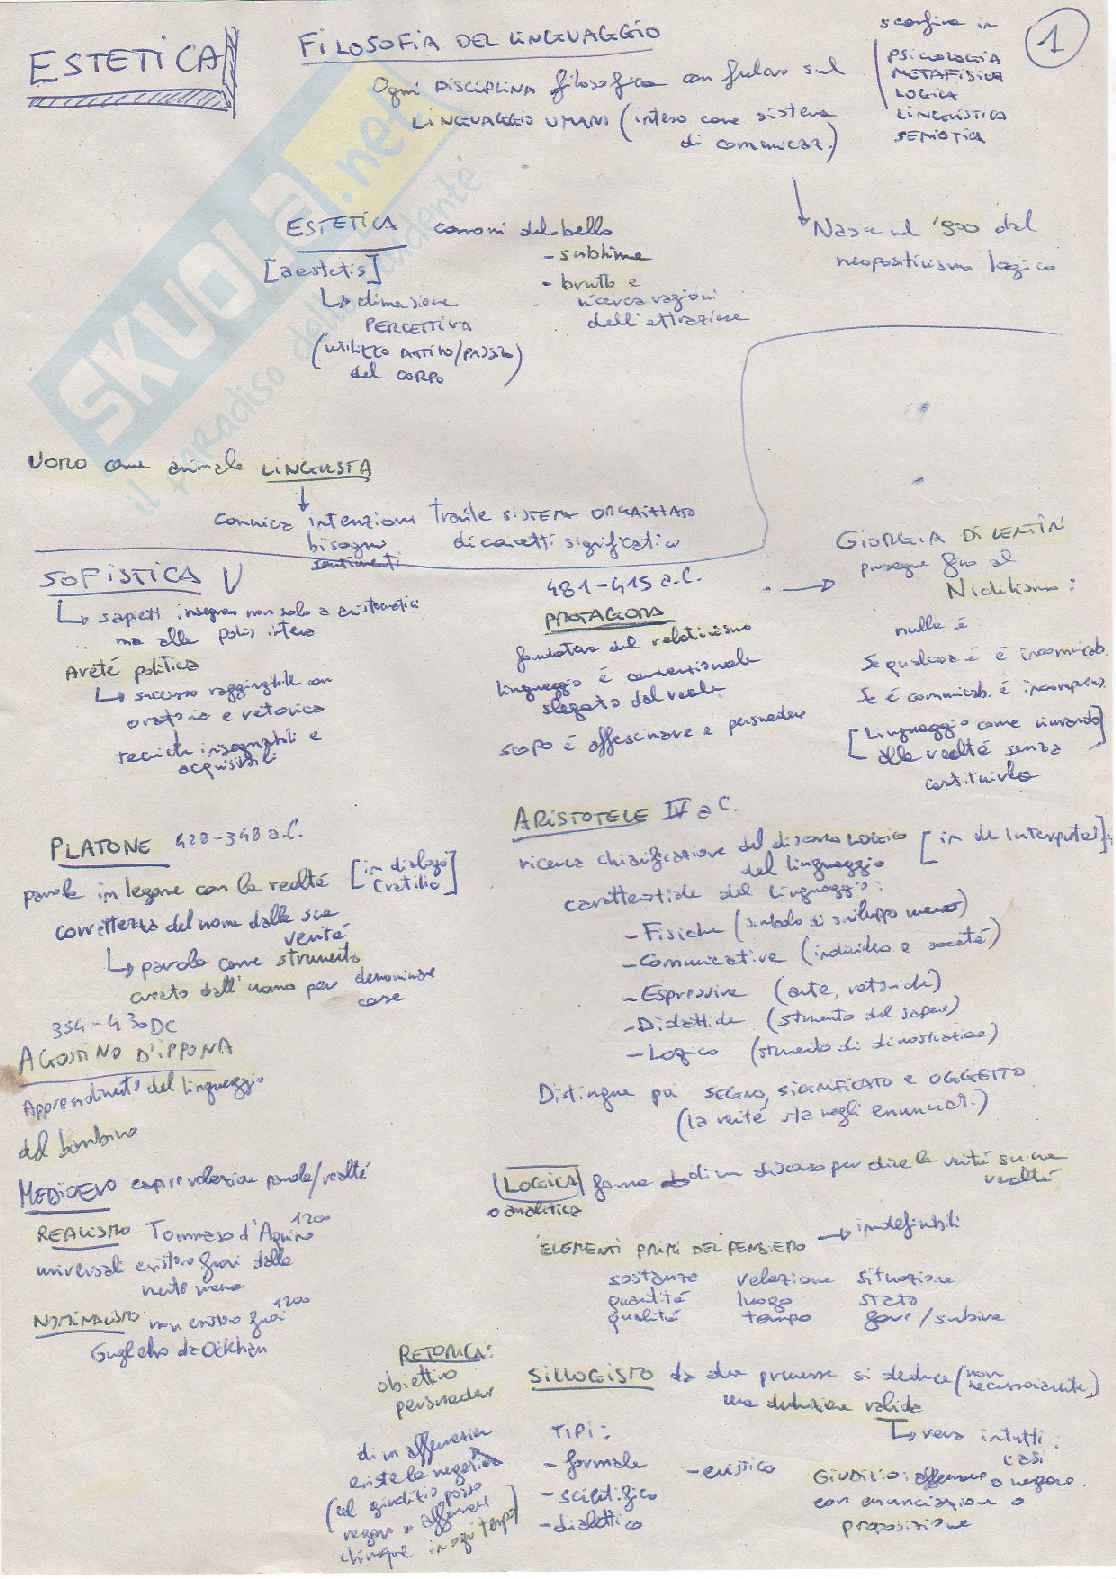 ESTETICA
FILOSOFIA DEL LINGUAGGIO
Ogni DISCIPLINA filosofica con fulcro sul
LINGUAGGIO UMANO (inteso come sistema
di comunicaz.)
sconfina in
PSICOLOGIA
METAFISICA
LOGICA
LINGUISTICA
SEMIOTICA
1
Nasce nel '900 dal
neopositivismo logico
ESTETICA canoni del bello
- sublime
- brutto e
ricerca ragioni
dell'attrazione
[aestetis]
↳ dimensione
PERCETTIVA
(utilizzo ATTIVO/PASSIVO)
del CORPO
SKUOLA.net
il paradiso dello studente
UOMO come animale LINGUISTA
↓
comunica intenzioni tramite SISTEMA ORGANIZZATO
bisogno di concetti significativi
sentimenti
SOFISTICA V
↳ saperi insegnati non solo a aristocratici
ma alla polis intera
Areté politica
↳ successo raggiungibile con
oratoria e retorica
tecniche insegnabili e
acquisibili
481-415 a.C.
PROTAGORA
fondatore del relativismo
linguaggio è convenzionale
slegato dal reale
scopo è affascinare e persuadere
→ GIORGIA DI LENTIN
prosegue fino al
Nichilismo:
nulla è
Se qualcosa è è inconoscib.
Se è comunicab. è incomprens.
[Linguaggio come rimando]
alla realtà senza
costituirla
PLATONE 428-348 a.C.
parole in legame con la realtà [in dialogo
Cratilio]
correttezza del nome dalla sua
verità
↳ parola come strumento
creato dall'uomo per denominare
cose
354-430 DC
AGOSTINO D'IPPONA
Apprendimento del linguaggio
del bambino
MEDIOEVO relazione parole/realtà
REALISMO Tommaso d'Aquino 1200
universali esistono fuori dalla
mente umana
NOMINALISMO non esistono fuori 1200
Guglielmo da Ockham
ARISTOTELE IV a C.
ricerca chiarificazione del discorso LOGICO [in de Interpretat.]
del linguaggio
caratteristiche del linguaggio:
- Fisiche (simbolo di sviluppo umano)
- Comunicative (individuo e società)
- Espressive (arte, retorica)
- Didattiche (strumento del sapere)
- Logico (strumento di dimostrazione)
Distingue poi SEGNO, SIGNIFICATO e OGGETTO
(la verità sta negli enunciat.)
LOGICA forma di un discorso per dire la verità su una
realtà
o analitica
ELEMENTI PRIMI DEL PENSIERO → indefinibili
sostanza relazione situazione
quantità luogo stato
qualità tempo fare/subire
RETORICA:
obiettivo
persuadere
di un'affermazione
esiste la negativa
(ed giudizio posso
negare o affermare
chiunque in ogni tempo)
SILLOGISMO da due premesse si deduce (non necessariamente)
una deduzione valida
↳ vera in tutti
casi
TIPI:
- formale
- scientifico
- dialettico
- eristico
GIUDIZIO: affermare o negare
con enunciazione o
proposizione